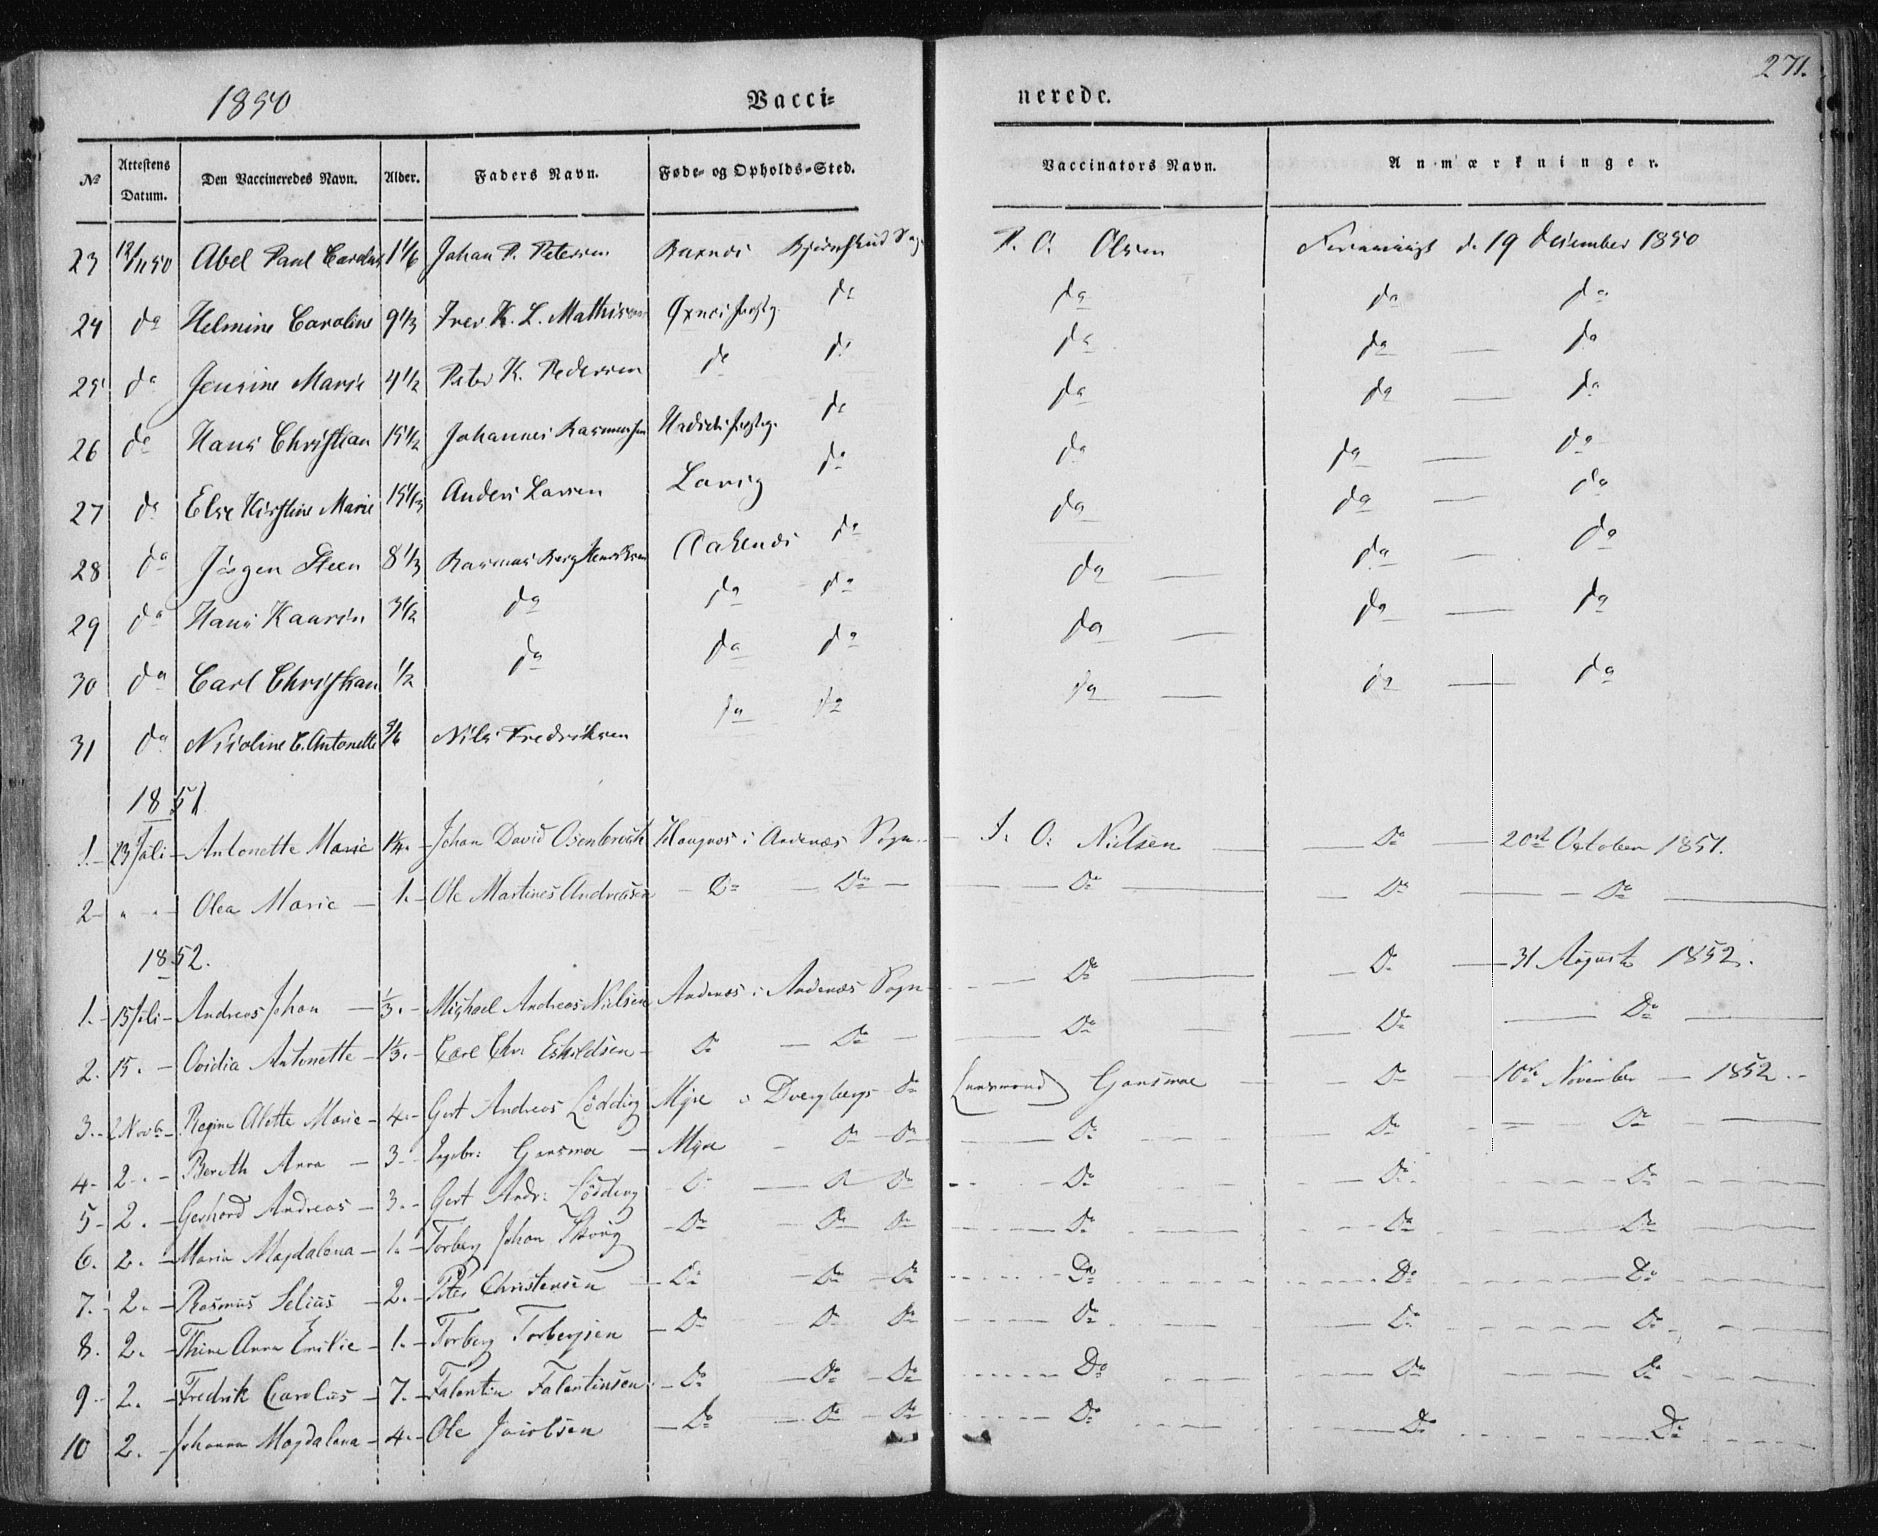 271.
1850 Vacci= nerede.
No Attestens Datum. Den Vaccineredes Navn. Alder. Faders Navn. Føde- og Opholds-Sted. Vaccinators Navn. Anmærkninger.
23 Abel Paul 1 1/6 Johan P. Petersen P. O. Olsen d. 19 Desember 1850
24 do Helmine Caroline 9 1/3 K. L. do do do do
25 do Jensine Marie 4 1/2 Peter K. Pedersen do do do do do
26 do Hans Christian 15 1/2 Johannes do do do do
27 do Else Kirstine Marie Anders Larsen do do do do
28 do Jörgen Steen 8 1/3 Rasmus Berg do do do do
29 do Hans Kaarin 3 1/2 do do do do do do
30 do Carl Christian 1/2 do do do do do do
31 do Antonette Nils Fredriksen do do do do do
1851
1. 23 Juli Antonette Marie 1 1/4. Johan David i Andenæs Sogn. O. Nielsen Do 20de October 1851.
2 " " Olea Marie 1. Ole Martines Andreasen Do Do Do Do Do
1852.
1. 15 Juli Andreas Johan 1/3. Michael Andreas Nielsen Andenæs i Andenæs Sogn Do Do 31 August 1852.
2. 15. Ovidia Antonette 1 1/3. Carl Chr. Eskildsen Do Do Do Do Do
3. 2 Novb. Regine Alette Marie 4. Gert Andreas Lödding Myre Dverbergs Do Gansmoe Do 10de November 1852.
4. 2. Bereth Anna 3. Ingebr: Gansmoe Myre Do Do Do Do Do
5 2. Gerhard Andreas 3. Gert Andr: Lödding Do Do Do Do Do Do
6. 2. Maria Magdalena 1. Torberg Johan Do Do Do Do Do Do
7. 2. Rasmus Selius 2. Peter Christensen Do Do Do Do Do Do
8. 2. Thine Anna Emilie 1. Torberg Torbergsen Do Do Do Do Do Do
9 2. Fredrik Carolus 7. Falentin Falentinsen Do Do Do Do Do Do
10 2. Johanna Magdalena 4. Ole Jacobsen Do Do Do Do Do Do